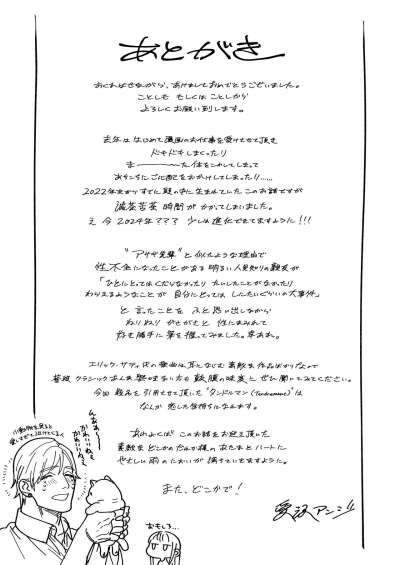 あとがき
おくればせながら、あけましておめでとうございました。
ことしも もしくは ことしから
よろしくお願い致します。
去年は はじめて漫画のお仕事を受けさせて頂き
ドキドキしまくったり
また体をこわしてしまって
あちこちにご心配をおかけしてしまったり……
2022年末からすでに頭の中に生まれていたこのお話ですが
滅茶苦茶 時間が かかってしまいました。
え 今 2024年??? 少しは進化できてますように!!!
と似たような理由で
性不全になったことがある 明るい人見知りの親友が
「ひとにとってはくだらなかったり たいしたことがなかったり
わらえるようなことが 自分にとっては しにたいぐらいの大事件」
と言ったことを ふと思い出しながら
ねりねり がさがさと 性にまみれて
好き勝手に筆を執ってみました。
エリック・サティ氏の楽曲は、耳となじむ素敵な作品ばかりなので
普段 クラシックあんま 聴かない方も 是非 ぜひ聞いてみてください。
今回 題名を引用させて頂いた "タンドルマン (Tendrement)" は
なんか 悲しい気持ちになります。
あわよくば このお話をお迎え頂いた
素敵などこかのだれか様の あたまと ハートに
やさしい雨のにおいが 満ちていきますように。
また、どこかで！
おもしろ…